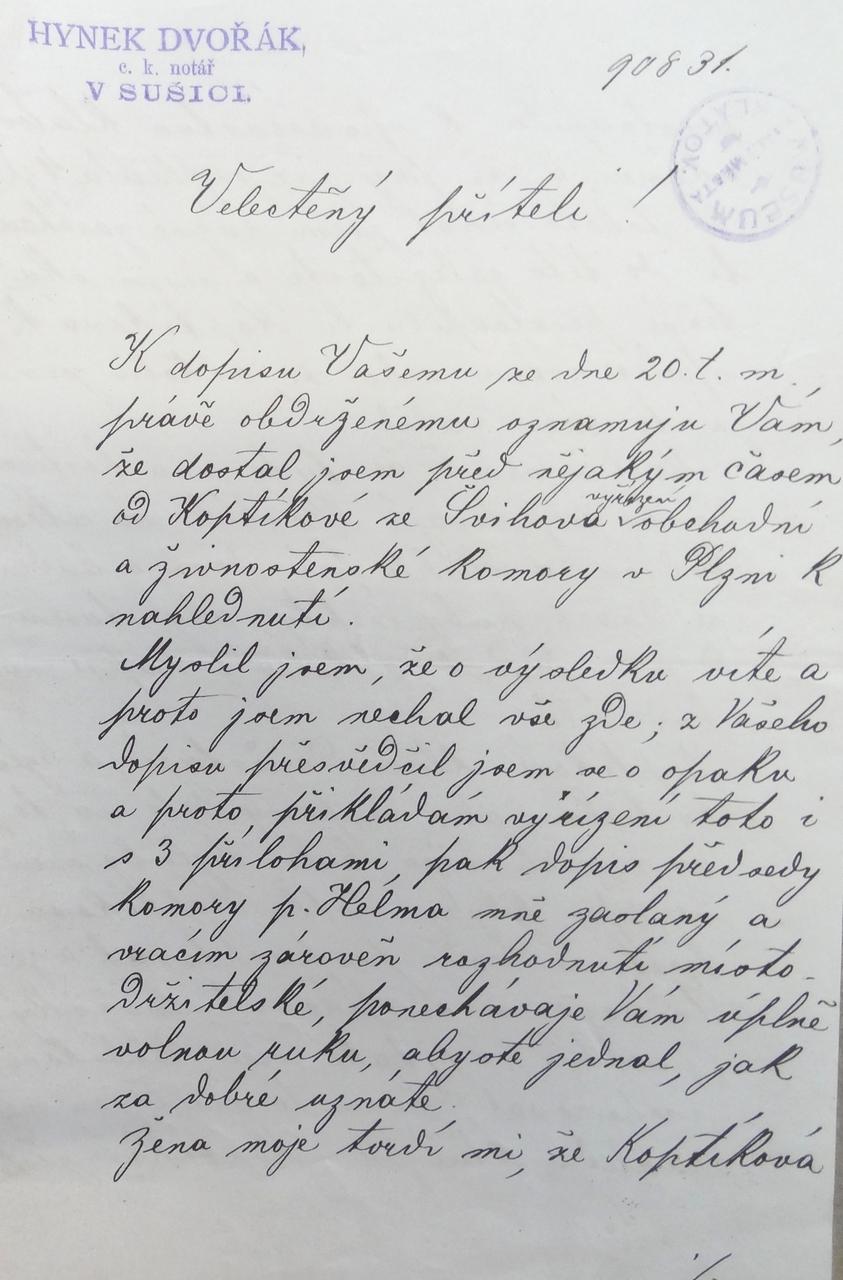 HYNEK DVOŘÁK,
c. k. notář
V SUŠICI.
90831.
MUSEUM MĚSTA KLATOV
Velectěný příteli !
K dopisu Vašemu ze dne 20. t. m.
právě obdrženému oznamuju Vám,
že dostal jsem před nějakým časem
od Koptíkové ze Švihova vyřízení obchodní
a živnostenské komory v Plzni k
nahlednutí.
Myslil jsem, že o výsledku víte a
proto jsem nechal vše zde ; z Vašeho
dopisu přesvědčil jsem se o opaku
a proto přikládám vyřízení toto i
s 3 přílohami, pak dopis předsedy
komory p. Helma mně zaslaný a
vracím zároveň rozhodnutí místo-
držitelské, ponechávaje Vám úplně
volnou ruku, abyste jednal, jak
za dobré uznáte.
Žena moje tvrdí mi, že Koptíková
./.